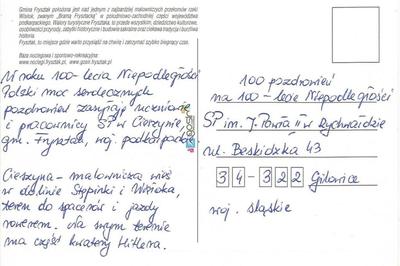 Gmina Frysztak położona jest nad jednym z najbardziej malowniczych przełomów rzeki
Wisłok, zwanym „Bramą Frysztacką" w południowo-zachodniej części województwa
podkarpackiego. Walory turystyczne Frysztaka, to przede wszystkim, dziedzictwo kulturowe,
osobliwości przyrody, zabytki historyczne i budowle sakralne oraz ciekawa tradycja i burzliwa
historia.
Frysztak, to miejsce gdzie warto przysiąść na chwilę i zatrzymać szybko biegnący czas.
Baza noclegowa i sportowo-rekreacyjna:
www.nocleg.frysztak.pl, www.gosir.frysztak.pl
W roku 100-lecia Niepodległości
Polski moc serdecznych
pozdrowień zasyłają uczniowie
i pracownicy SP w Cieszynie,
gm. Frysztak, woj. podkarpackie.
Cieszyna - malownicza wieś
w dolinie Stępinki i Wisłoka,
teren do spacerów i jazdy
rowerem. Na swym terenie
ma część kwatery Hitlera.
100 pozdrowień
na 100-lecie Niepodległości
SP im. J. Pawła II w Rychwałdzie
ul. Beskidzka 43
34-322 Gilowice
woj. śląskie